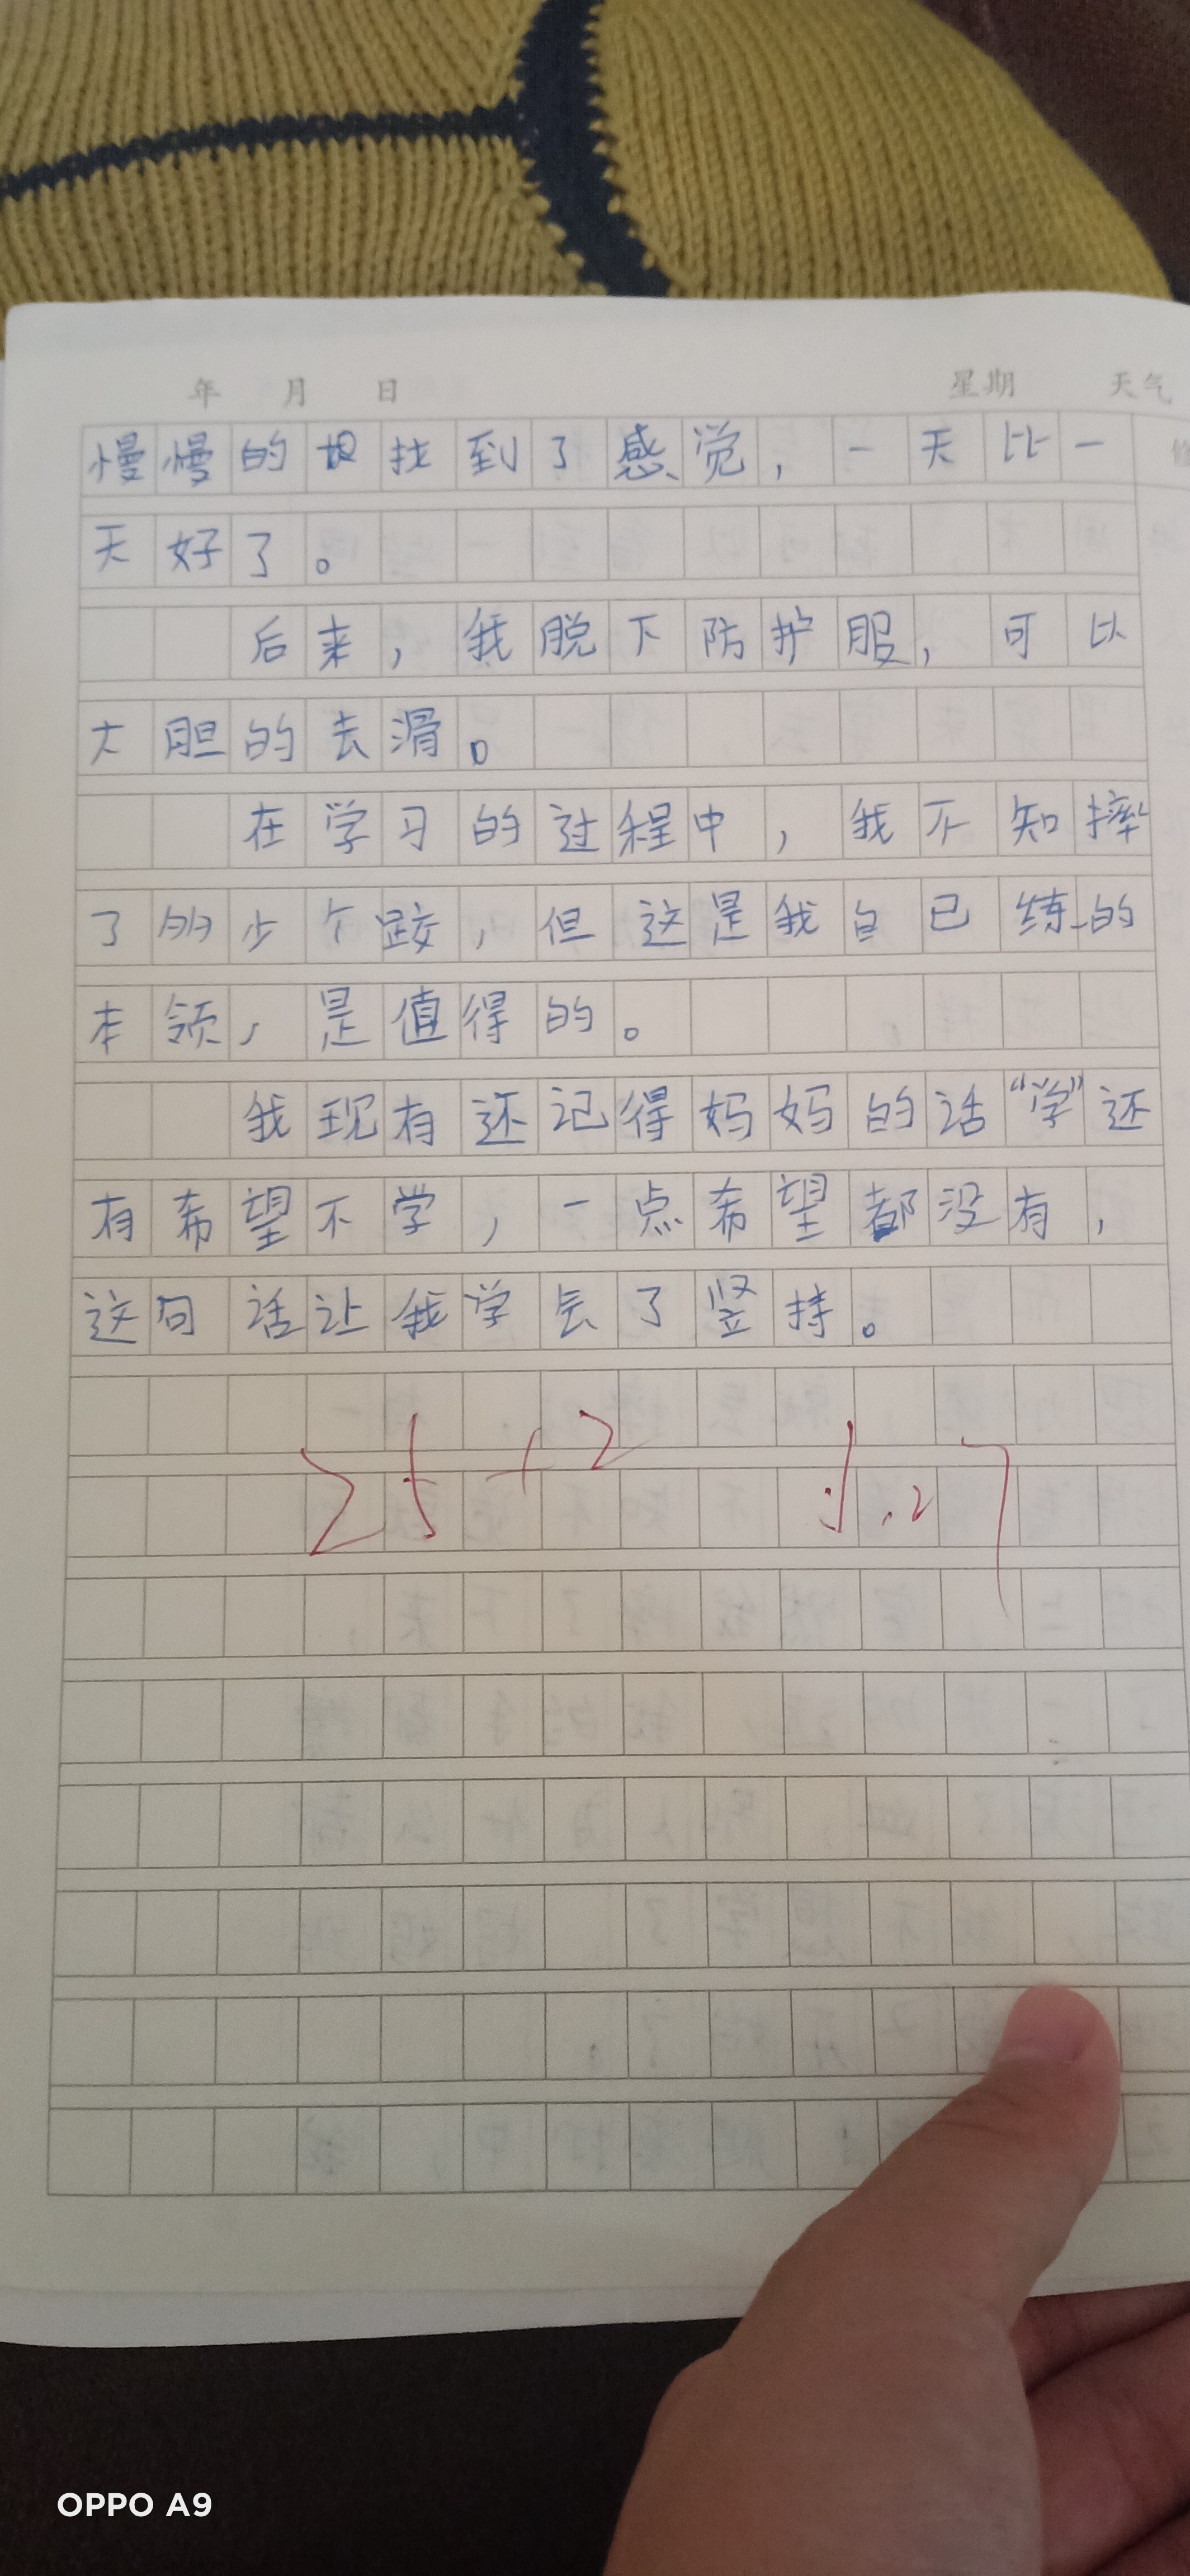 年 月 日 星期 天气
慢慢的找到了感觉，一天比一
天好了。
后来，我脱下防护服，可以
大胆的去滑。
在学习的过程中，我不知摔
了多少个跤，但这是我自已练的
本领，是值得的。
我现有还记得妈妈的话“学”还
有希望不学，一点希望都没有，
这句话让我学会了竖持。
25+2
1.27
OPPO A9